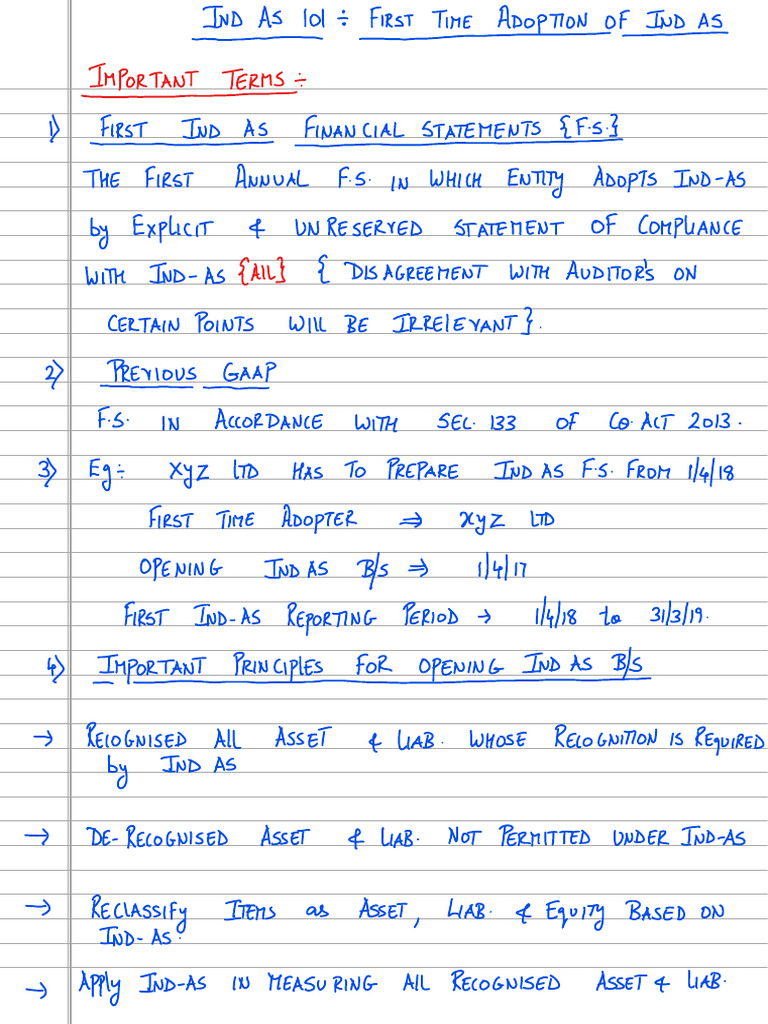 IND AS 101 ÷ FIRST TIME ADOPTION OF IND AS
IMPORTANT TERMS ÷
1) FIRST IND AS FINANCIAL STATEMENTS {F.S.}
THE FIRST ANNUAL F.S. IN WHICH ENTITY ADOPTS IND-AS
by EXPLICIT & UNRESERVED STATEMENT OF COMPLIANCE
WITH IND-AS {All} { DISAGREEMENT WITH AUDITOR'S ON
CERTAIN POINTS WILL BE IRRELEVANT}.
2) PREVIOUS GAAP
F.S. IN ACCORDANCE WITH SEC. 133 OF CO. ACT 2013.
3) Eg ÷ XYZ LTD HAS TO PREPARE IND AS F.S. FROM 1/4/18
FIRST TIME ADOPTER ⇒ XYZ LTD
OPENING IND AS B/S ⇒ 1/4/17
FIRST IND-AS REPORTING PERIOD → 1/4/18 to 31/3/19.
4) IMPORTANT PRINCIPLES FOR OPENING IND AS B/S
→ RECOGNISED All ASSET & LIAB. WHOSE RECOGNITION IS REQUIRED
by IND AS
→ DE-RECOGNISED ASSET & LIAB. NOT PERMITTED UNDER IND-AS
→ RECLASSIFY ITEMS as ASSET, LIAB. & EQUITY BASED ON
IND-AS.
→ APPLY IND-AS IN MEASURING All RECOGNISED ASSET & LIAB.